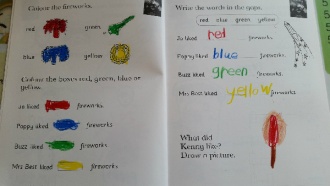 Colour the fireworks.
red
green
blue
yellow
Colour the boxes red, green, blue or
yellow.
Jo liked fireworks.
Poppy liked fireworks.
Buzz liked fireworks.
Mrs Best liked fireworks.
Write the words in the gaps.
red blue green yellow
Jo liked red fireworks.
Poppy liked blue fireworks.
Buzz liked green fireworks.
Mrs Best liked yellow fireworks.
What did
Kenny like?
Draw a picture.